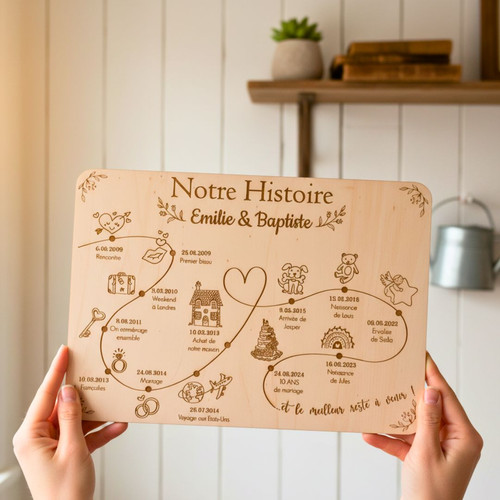 Notre Histoire
Emilie & Baptiste
6.06.2009
Rencontre
25.06.2009
Premier bisou
9.03.2010
Weekend
à Londres
8.09.2011
On emménage
ensemble
10.03.2013
Fiançailles
24.08.2014
Mariage
26.07.2014
Voyage aux Etats-Unis
10.2013
Achat de
notre maison
9.03.2015
Arrivée de
Jasper
15.02.2018
Naissance
de Louis
08.06.2022
Envolée
de Stella
16.08.2023
Naissance
de Jules
24.08.2024
10 ANS
de mariage
et le meilleur reste à venir !